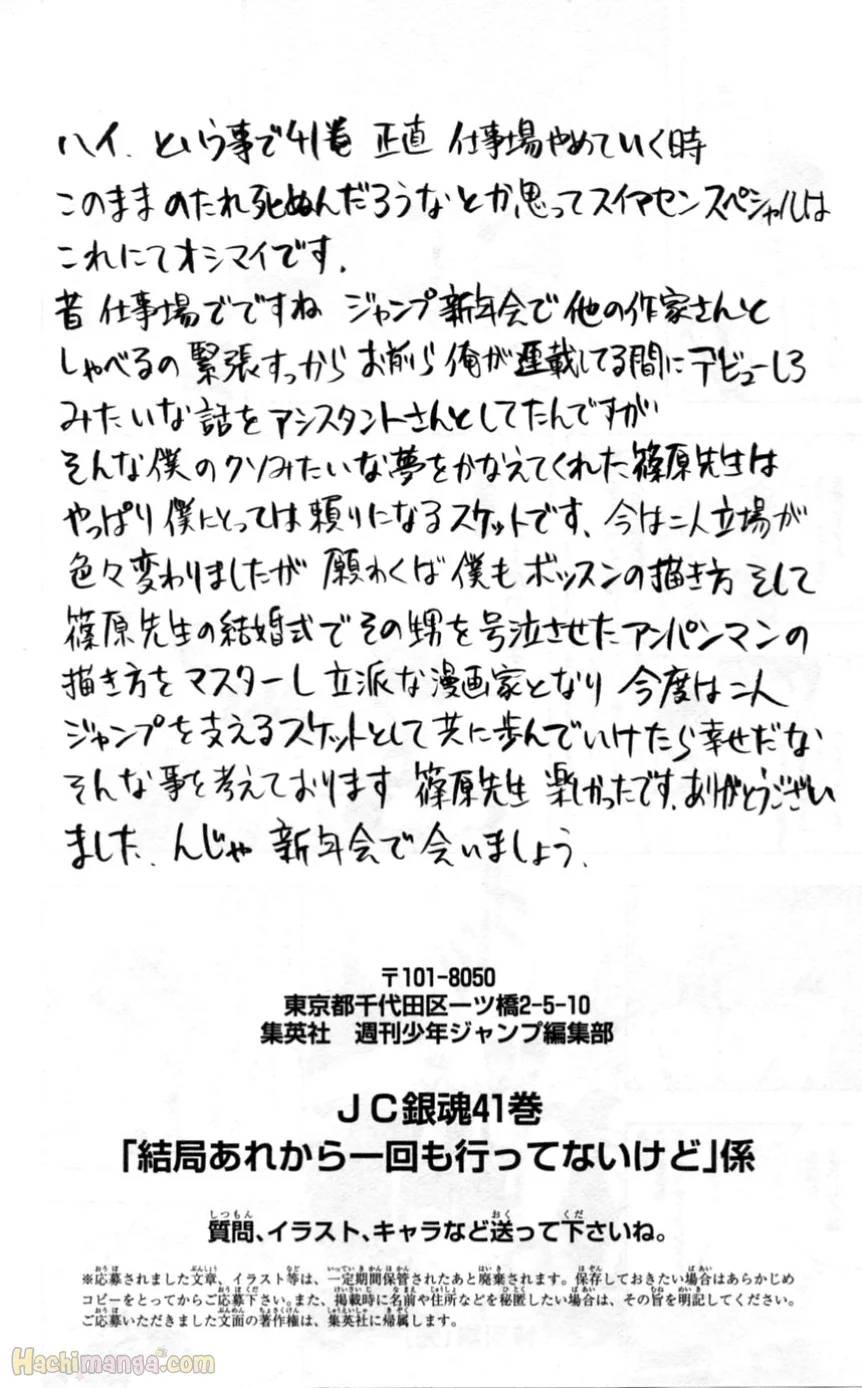 ハイ、という事で41巻 正直 仕事場やめていく時
このままのたれ死ぬんだろうなとか思ってスイマセンスペシャルは
これにてオシマイです.
昔 仕事場でですね ジャンプ新年会で他の作家さんと
しゃべるの緊張すっからお前ら俺が連載してる間にデビューしろ
みたいな話をアシスタントさんとしてたんですが
そんな僕のクソみたいな夢をかなえてくれた篠原先生は
やっぱり僕にとっては頼りになるスケットです、今は二人立場が
色々変わりましたが 願わくば僕もボッスンの描き方 そして
篠原先生の結婚式でその甥を号泣させたアンパンマンの
描き方をマスターし立派な漫画家となり 今度は二人
ジャンプを支えるスケットとして共に歩んでいけたら幸せだな
そんな事を考えております 篠原先生 楽しかったです、ありがとうござい
ました、んじゃ 新年会で会いましょう.
〒101-8050
東京都千代田区一ツ橋2-5-10
集英社 週刊少年ジャンプ編集部
JC銀魂41巻
「結局あれから一回も行ってないけど」係
質問、イラスト、キャラなど送って下さいね。
※応募されました文章、イラスト等は、一定期間保管されたあと廃棄されます。保存しておきたい場合はあらかじめ
コピーをとってからご応募下さい。また、掲載時に名前や住所などを秘匿したい場合は、その旨を明記してください。
ご応募いただきました文面の著作権は、集英社に帰属します。
Hachimanga.com